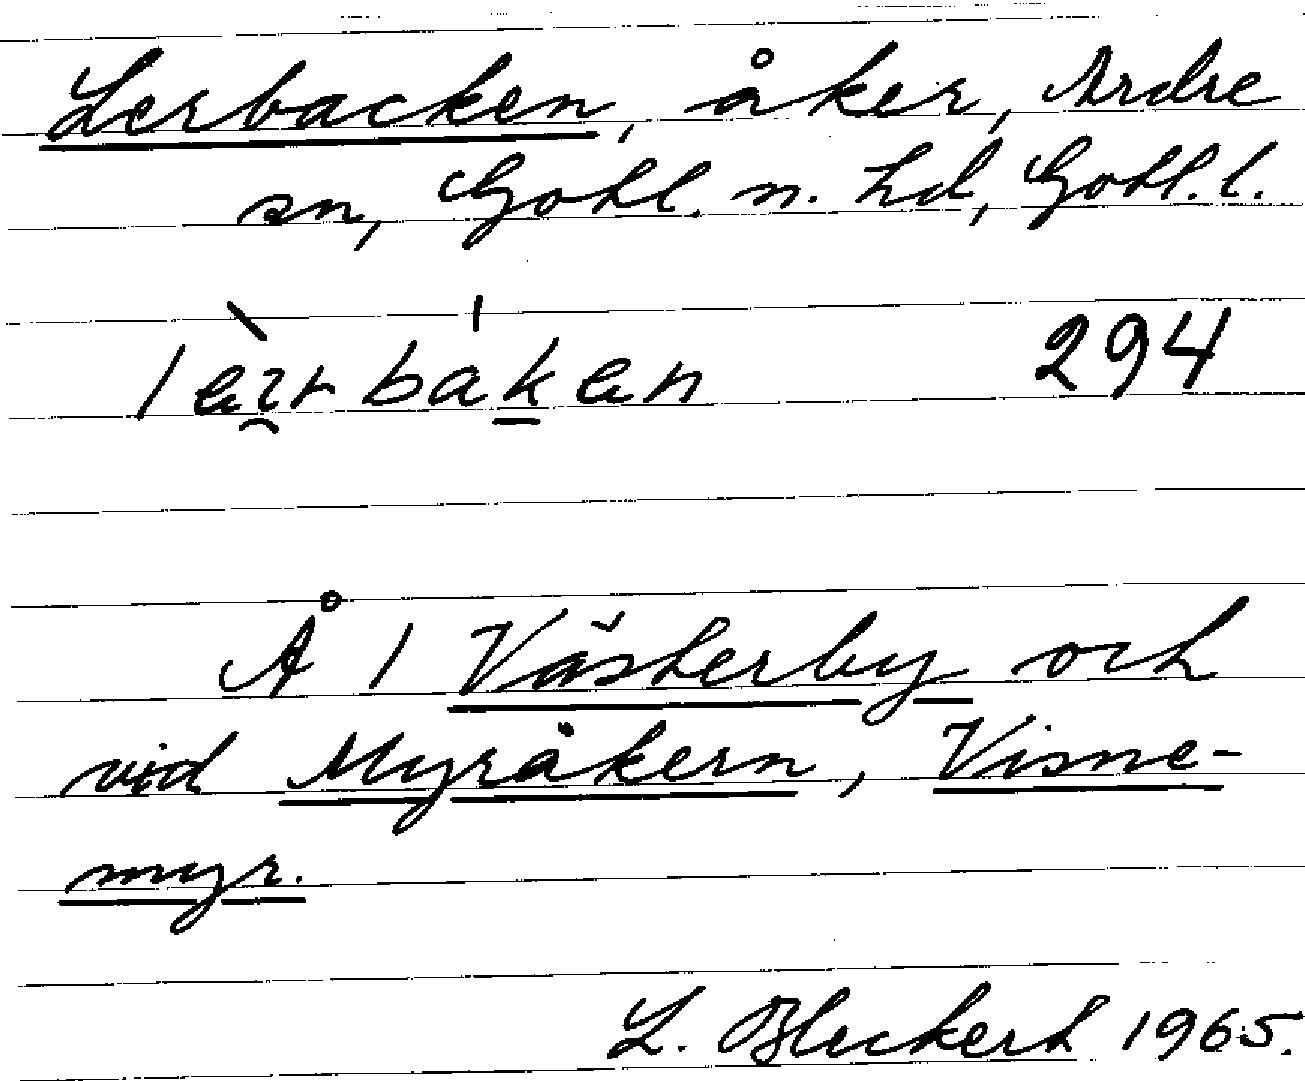 Lerbacken, åker, Ardre
sn, Gotl. n. hd, Gotl. l.
294
Å 1 Västerby och
vid Myråkern, Visne-
myr.
L. Bleckert 1965.